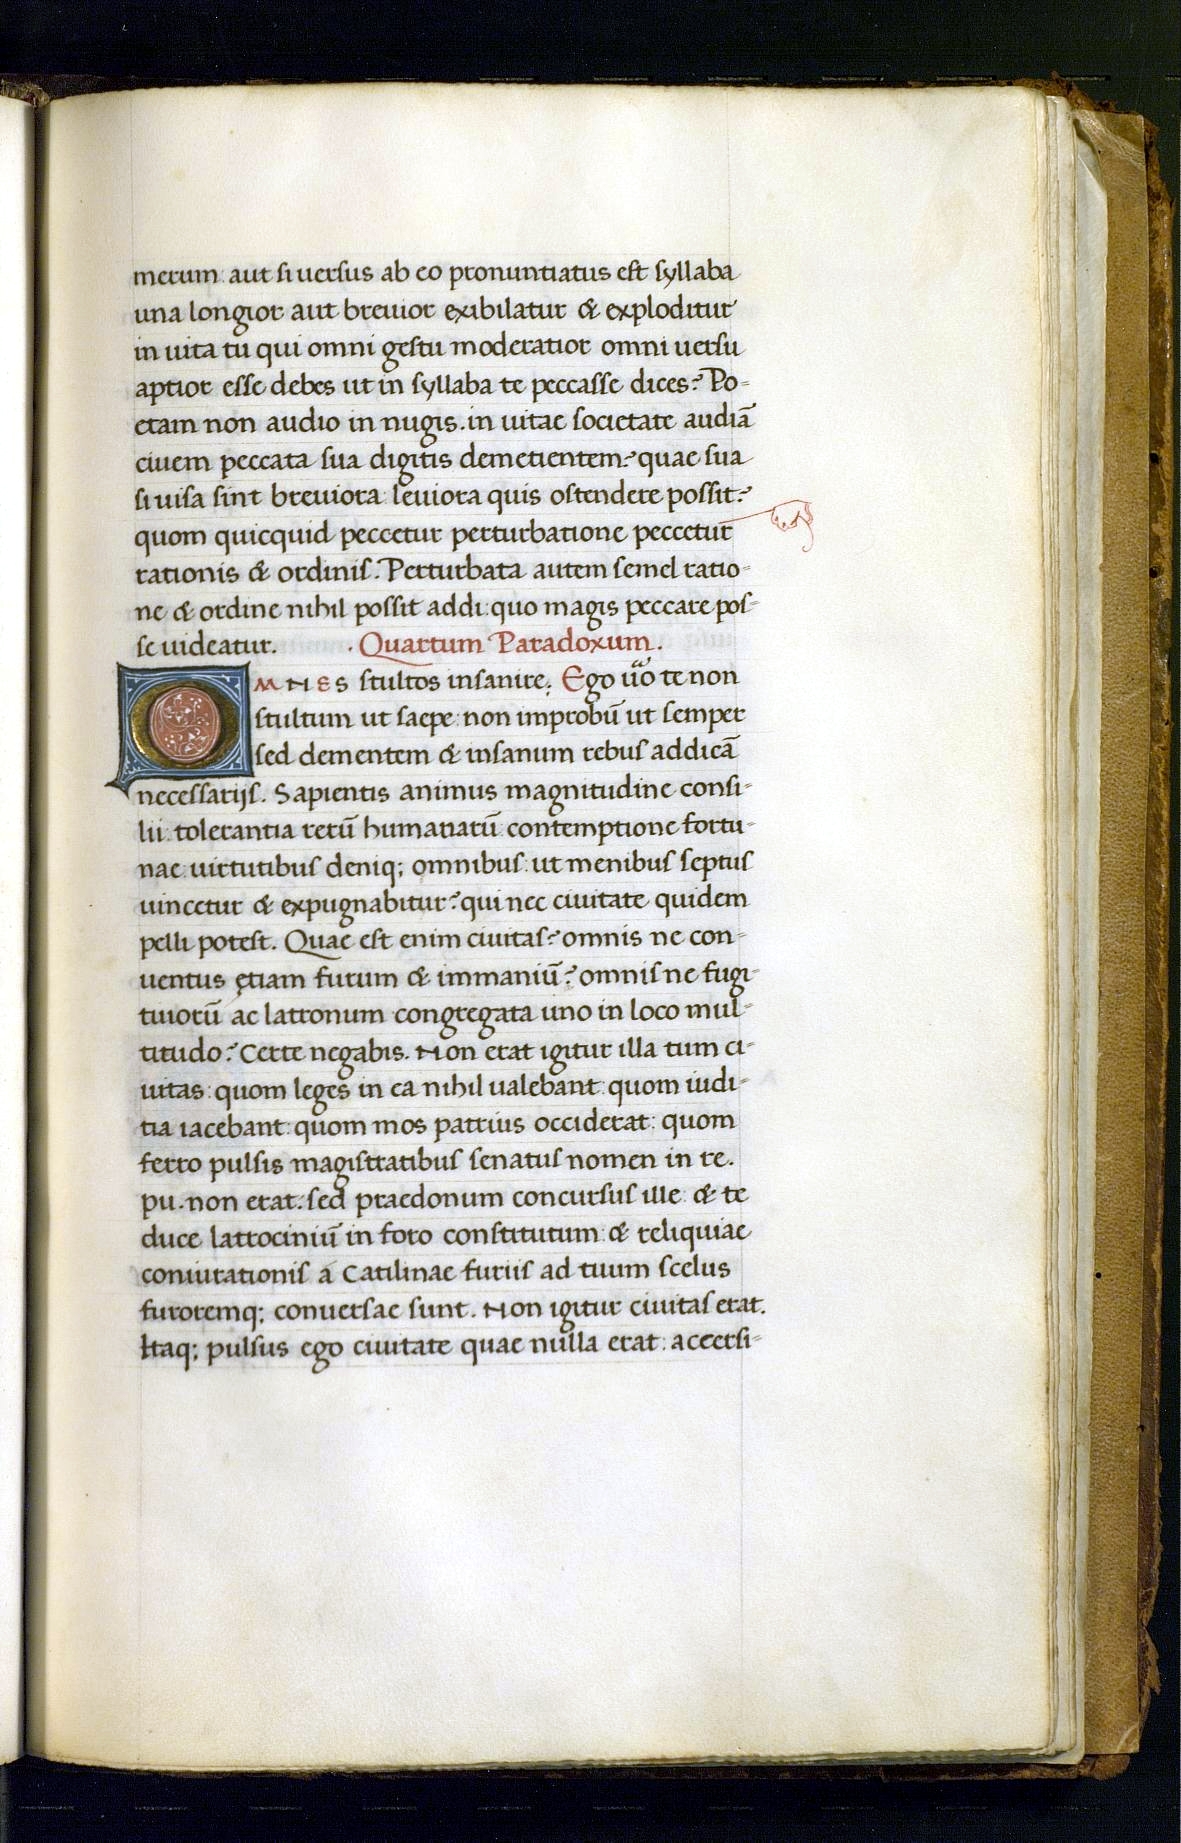 merum: aut si uersus ab eo pronuntiatus est syllaba
una longior aut breuior exibilatur & exploditur
in uita tu qui omni gestu moderatior omni uersu
aptior esse debes ut in syllaba te peccasse dices? Po-
etam non audio in nugis. in uitae societate audiā
ciuem peccata sua digitis demetientem? quae sua
si uisa sint breuiora leuiora quis ostendere possit?
quom quicquid peccetur perturbatione peccetur
rationis & ordinis. Perturbata autem semel ratio-
ne & ordine nihil possit addi: quo magis peccare pos-
se uideatur. . Quartum Paradoxum.
OMNES stultos insanire. Ego ūo te non
stultum ut saepe: non improbū ut semper
sed dementem & insanum rebus addicā
necessariis. Sapientis animus magnitudine consi-
lii: tolerantia rerū humanarū contemptione fortu-
nae: uirtutibus deniq; omnibus: ut menibus septus
uincetur & expugnabitur? qui nec ciuitate quidem
pelli potest. Quae est enim ciuitas? omnis ne con-
uentus ętiam furum & immaniū? omnis ne fugi-
tiuorū ac latronum congregata uno in loco mul-
titudo? Certe negabis. Non erat igitur illa tum ci-
uitas: quom leges in ea nihil ualebant: quom iudi-
tia iacebant: quom mos patrius occiderat: quom
ferro pulsis magistratibus senatus nomen in re.
pu. non erat: sed praedonum concursus ille: & te
duce latrociniū in foro constitutum: & reliquiae
coniurationis a Catilinae furiis ad tuum scelus
furoremq; conuersae sunt. Non igitur ciuitas erat.
Itaq; pulsus ego ciuitate quae nulla erat: accersi-